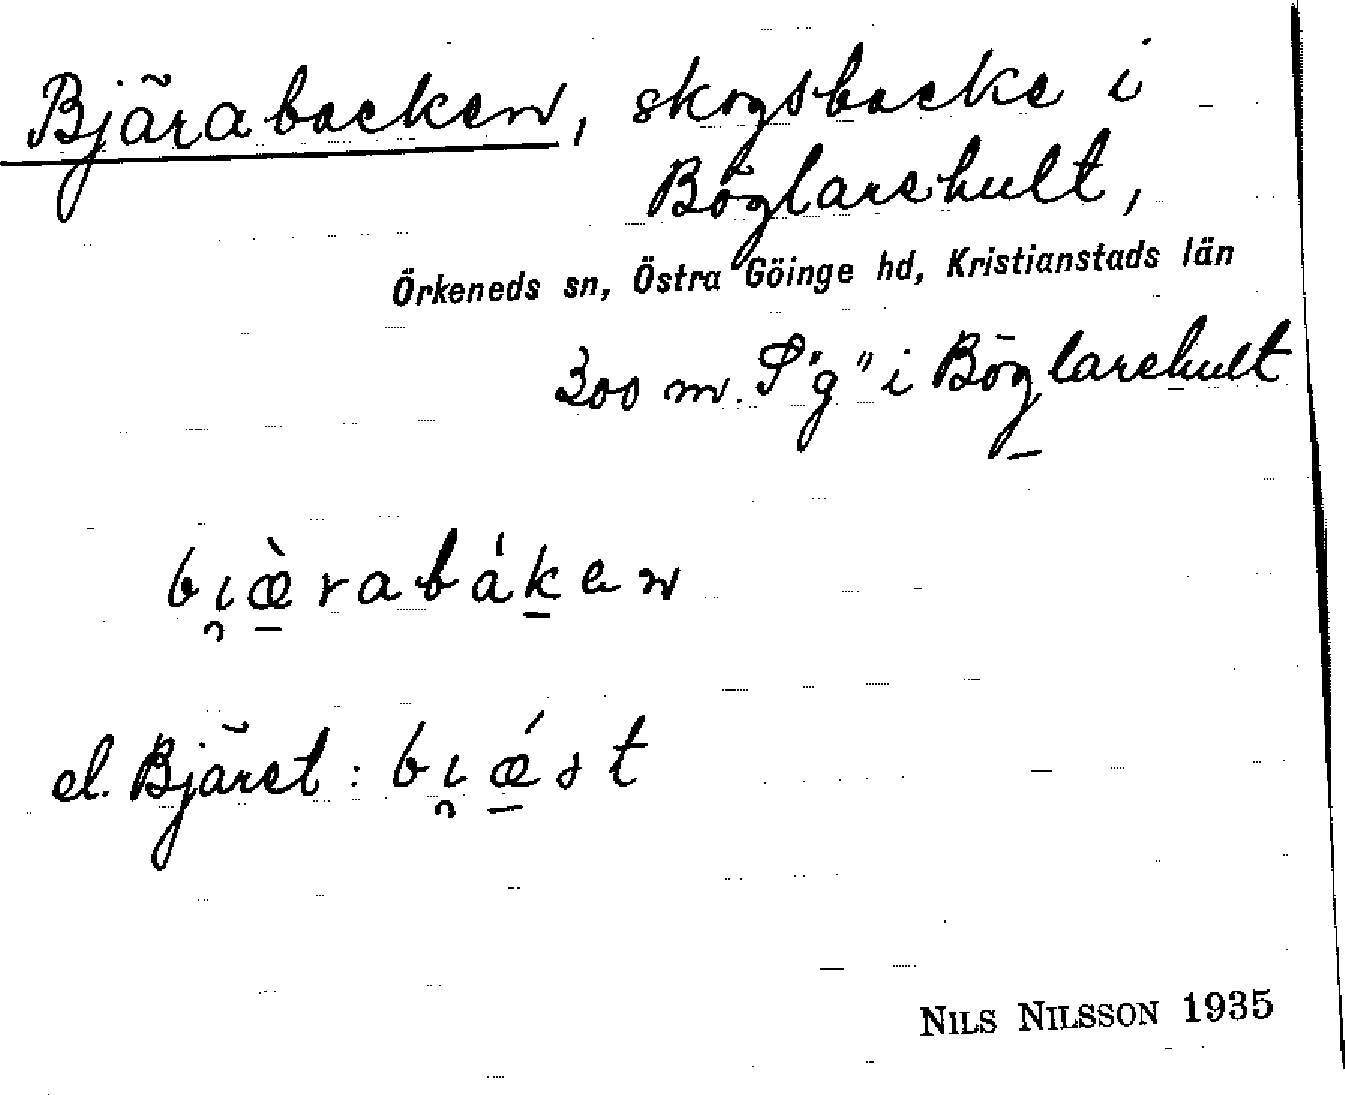 Bjärabacken, skogsbacke i
Böglarehult,
Örkeneds sn, Östra Göinge hd, Kristianstads län
300 m. S "g" i Böglarehult
bi̯æ̠̀rabák̠en
el. Bjäret: bi̯ǽ̠ɹt
NILS NILSSON 1935